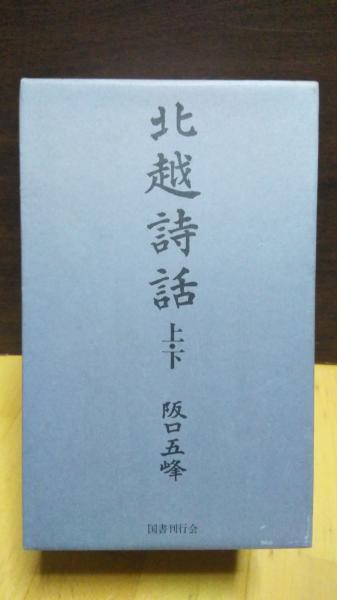 北越詩話
上・下
阪口五峰
国書刊行会